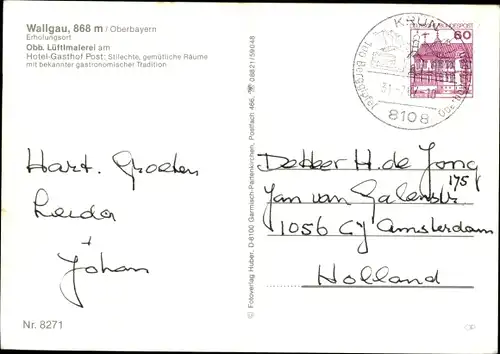 Wallgau, 868 m / Oberbayern
Erholungsort
Obb. Lüftlmalerei am
Hotel-Gasthof Post: Stilechte, gemütliche Räume
mit bekannter gastronomischer Tradition
KRÜN
8108
60
Hart. Groeten
Leida
+
Johan
Nr. 8271
© Fotoverlag Huber, D-8100 Garmisch-Partenkirchen, Postfach 466, ☎ 08821/59048
H. de Jong
Jan van Galenstr 175
1056 CJ Amsterdam
Holland